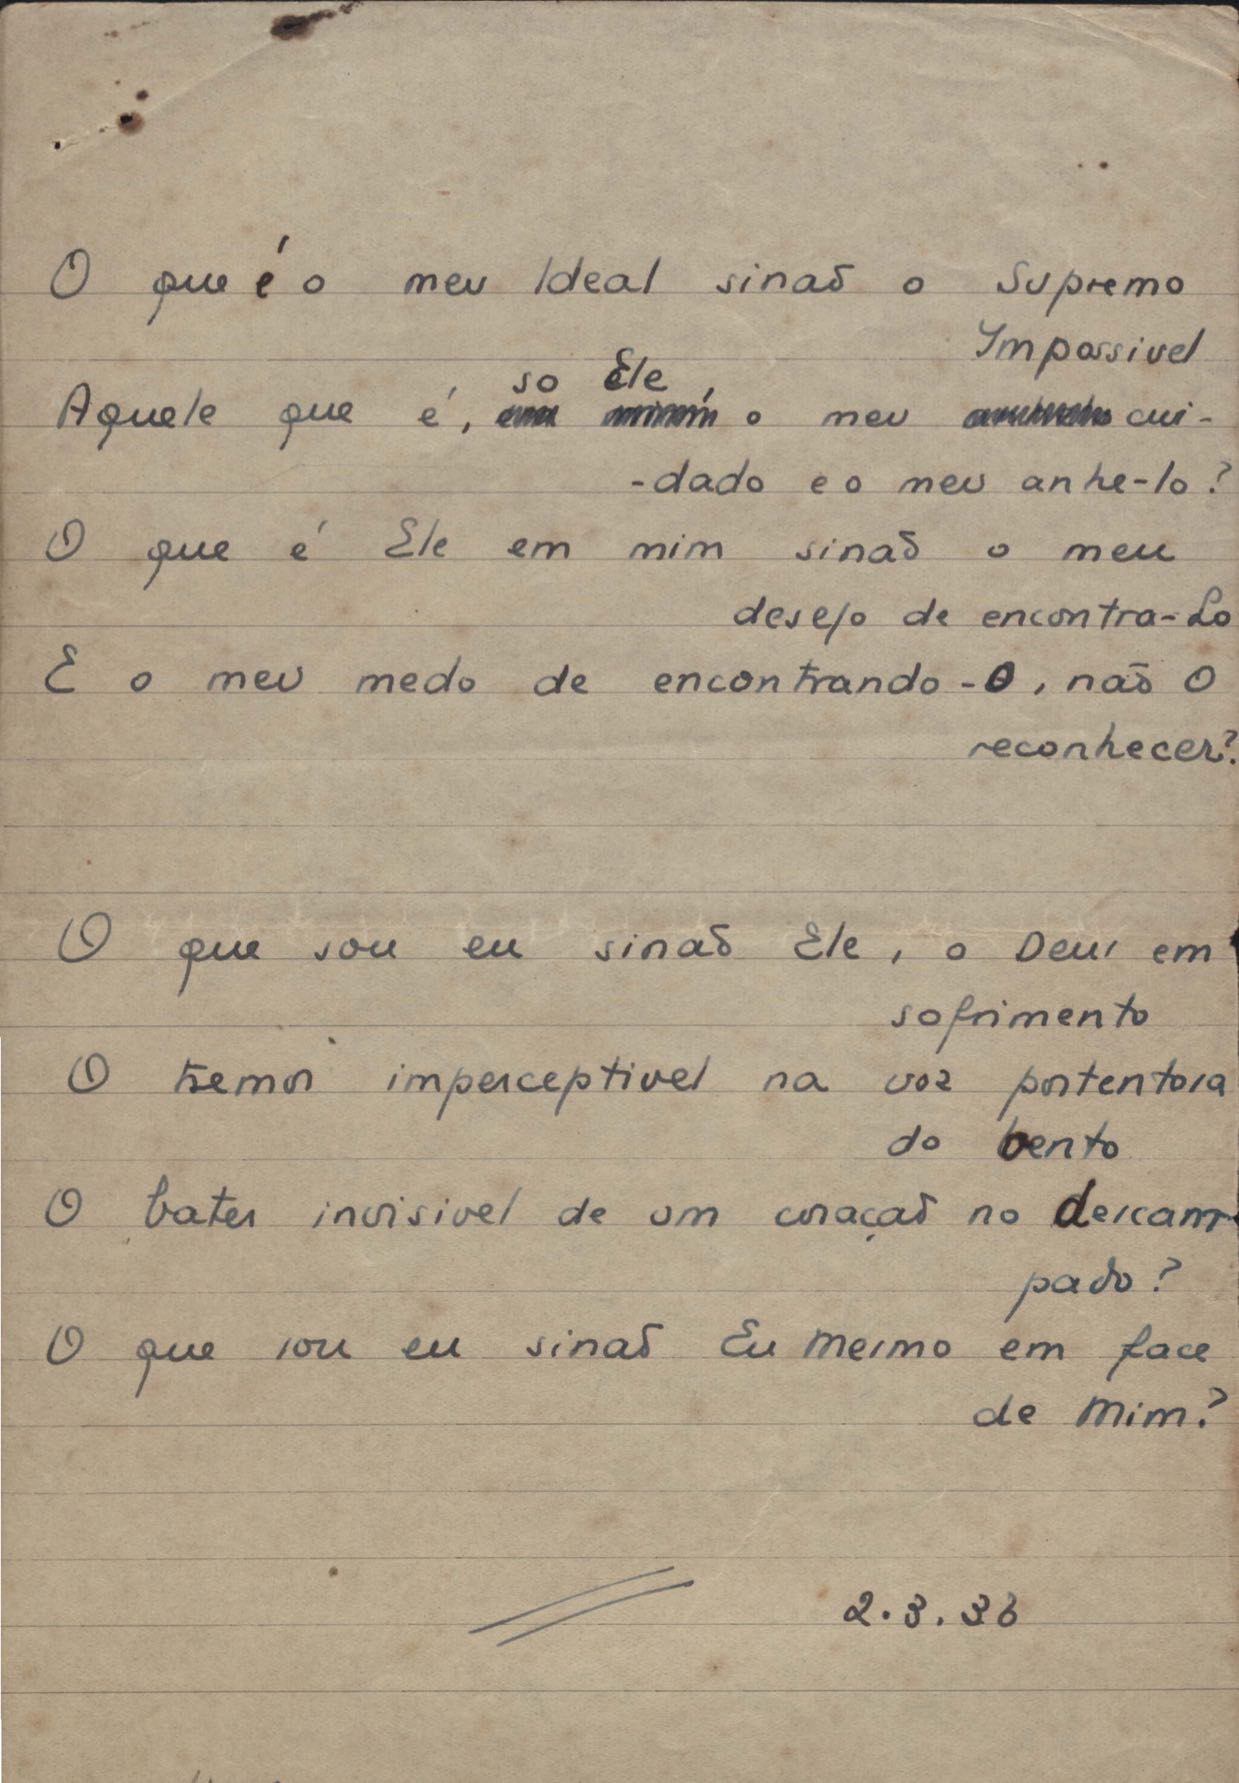 O que é o meu Ideal sinaõ o Supremo
Impossivel
so Ele,
Aquele que é, o meu cui-
-dado e o meu anhe-lo?
O que é Ele em mim sinaõ o meu
desejo de encontra-Lo
E o meu medo de encontrando-O, naõ O
reconhecer?
O que sou eu sinaõ Ele, o Deus em
sofrimento
O tremor imperceptivel na voz portentosa
do vento
O bater invisivel de um coraçaõ no descam-
pado?
O que sou eu sinaõ Eu Mesmo em face
de Mim?
2.3.36